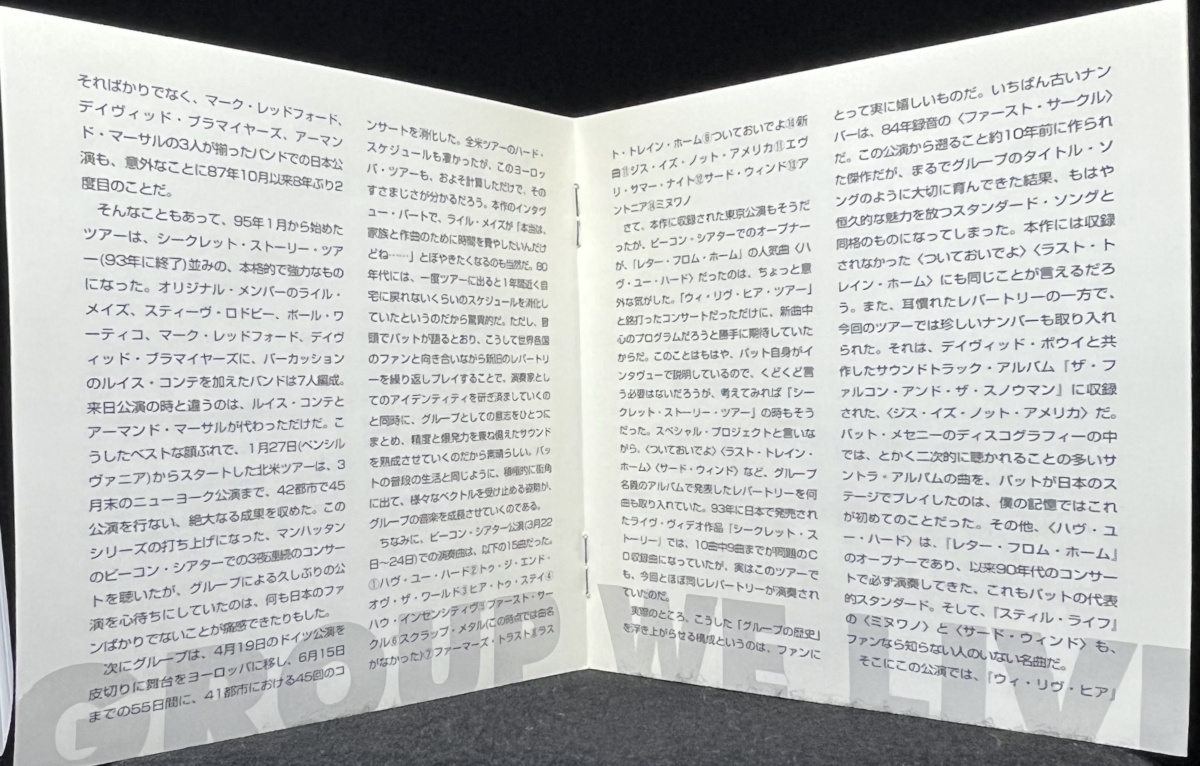 そればかりでなく、マーク・レッドフォード、
デイヴィッド・ブラマイヤーズ、アーマン
ド・マーサルの3人が揃ったバンドでの日本公
演も、意外なことに87年10月以来8年ぶり2
度目のことだ。
そんなこともあって、95年1月から始めた
ツアーは、シークレット・ストーリー・ツア
ー(93年に終了)並みの、本格的で強力なもの
になった。オリジナル・メンバーのライル・
メイズ、スティーヴ・ロドビー、ポール・ワ
ーティコ、マーク・レッドフォード、デイヴ
ィッド・ブライヤーズに、パーカッション
のルイス・コンテを加えたバンドは7人編成。
来日公演の時と違うのは、ルイス・コンテと
アーマンド・マーサルが代わっただけだ。こ
うしたベストな顔ぶれで、1月27日(ペンシル
ヴァニア)からスタートした北米ツアーは、3
月末のニューヨーク公演まで、42都市で45
公演を行ない、絶大なる成果を収めた。この
シリーズの打ち上げになった、マンハッタン
のビーコン・シアターでの3夜連続のコンサー
トを聴いたが、グループによる久しぶりの公
演を心待ちにしていたのは、何も日本のファ
ンばかりでないことが痛感できたりもした。
次にグループは、4月19日のドイツ公演を
皮切りに舞台をヨーロッパに移し、6月15日
までの55日間に、41都市における45回のコ
ンサートを消化した。全米ツアーのハード・
スケジュールも凄かったが、このヨーロッ
パ・ツアーも、およそ計算しただけで、その
すさまじさが分かるだろう。本作のインタヴ
ュー・パートで、ライル・メイズが「本当は、
家族と作曲のために時間を費やしたいんだけ
どね……」とぼやきたくなるのも当然だ。80
年代には、一度ツアーに出ると1年間近く自
宅に戻れないくらいのスケジュールを消化し
ていたというのだから驚異的だ。ただし、冒
頭でパットが語るとおり、こうして世界各国
のファンと向き合いながら新旧のレパートリ
ーを繰り返しプレイすることで、演奏家とし
てのアイデンティティを研ぎ済ましていくの
と同時に、グループとしての意志をひとつに
まとめ、精度と爆発力を兼ね備えたサウンド
を熟成させていくのだから素晴らしい。パッ
トの普段の生活と同じように、積極的に街角
に出て、様々なベクトルを受け止める姿勢が、
グループの音楽を成長させていくのである。
ちなみに、ビーコン・シアター公演(3月22
日〜24日)での演奏曲は、以下の15曲だった。
①ハヴ・ユー・ハード②トゥ・ジ・エンド・
オヴ・ザ・ワールド③ヒア・トゥ・ステイ④
ハウ・インセンシティヴ⑤ファースト・サー
クル⑥スクラップ・メタル(この時点では曲名
がなかった)⑦ファーマーズ・トラスト⑧ラス
ト・トレイン・ホーム⑨ついておいでよ⑩新
曲⑪ジス・イズ・ノット・アメリカ⑪エヴ
リ・サマー・ナイト⑫サード・ウィンド⑬ア
ントニア⑭ミヌワノ
さて、本作に収録された東京公演もそうだ
ったが、ビーコン・シアターでのオープナー
が、「レター・フロム・ホーム」の人気曲〈ハ
ヴ・ユー・ハード〉だったのは、ちょっと意
外な気がした。「ウィ・リヴ・ヒア・ツアー」
と銘打ったコンサートだっただけに、新曲中
心のプログラムだろうと勝手に期待していた
からだ。このことはもはや、パット自身がイ
ンタヴューで説明しているので、くどくど言
う必要はないだろうが、考えてみれば「シー
クレット・ストーリー・ツアー」の時もそう
だった。スペシャル・プロジェクトと言いな
がら、〈ついておいでよ〉〈ラスト・トレイン・
ホーム〉〈サード・ウィンド〉など、グループ
名義のアルバムで発表したレパートリーを何
曲も取り入れていた。93年に日本で発売され
たライヴ・ヴィデオ作品「シークレット・ス
トーリー」では、10曲中9曲までが同題のC
D収録曲になっていたが、実はこのツアーで
も、今回とほぼ同じレパートリーが演奏され
ていたのだ。
実際のところ、こうした「グループの歴史」
を浮き上がらせる構成というのは、ファンに
とって実に嬉しいものだ。いちばん古いナン
バーは、84年録音の〈ファースト・サークル〉
だ。この公演から遡ること約10年前に作られ
た傑作だが、まるでグループのタイトル・ソ
ングのように大切に育んできた結果、もはや
恒久的な魅力を放つスタンダード・ソングと
同格のものになってしまった。本作には収録
されなかった〈ついておいでよ〉〈ラスト・ト
レイン・ホーム〉にも同じことが言えるだろ
う。また、耳慣れたレパートリーの一方で、
今回のツアーでは珍しいナンバーも取り入れ
られた。それは、デイヴィッド・ボウイと共
作したサウンドトラック・アルバム『ザ・フ
ァルコン・アンド・ザ・スノウマン』に収録
された、〈ジス・イズ・ノット・アメリカ〉だ。
パット・メセニーのディスコグラフィーの中
では、とかく二次的に聴かれることの多いサ
ントラ・アルバムの曲を、パットが日本のス
テージでプレイしたのは、僕の記憶ではこれ
が初めてのことだった。その他、〈ハヴ・ユ
ー・ハード〉は、『レター・フロム・ホーム』
のオープナーであり、以来90年代のコンサー
トで必ず演奏してきた、これもパットの代表
的スタンダード。そして、『スティル・ライフ』
の〈ミヌワノ〉と〈サード・ウィンド〉も、
ファンなら知らない人のいない名曲だ。
そこにこの公演では、『ウィ・リヴ・ヒア』
GROUP WE LIVE